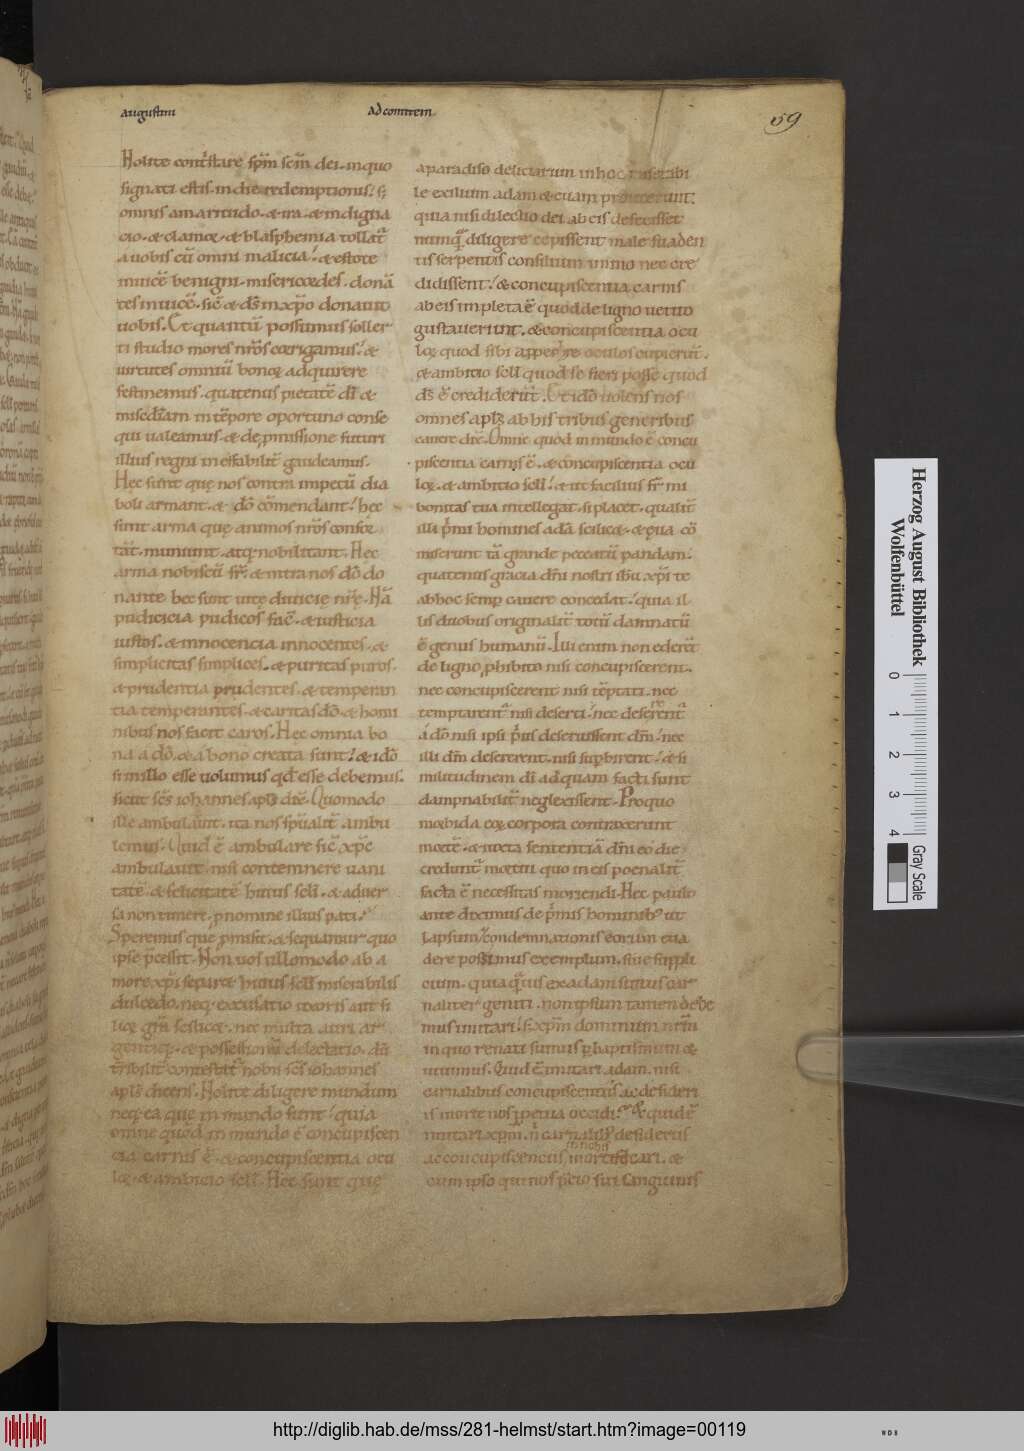 augustini
Ad comitem
59
Nolite cont͛stare sp̄m sc̄m dei. in quo
signati estis. in die redemptionis! s;
omnis amaritudo. & ira. & indigna
cio. & clamor. & blasphemia tollat᷑
a uobis cū omni malicia! & estote
inuicē benigni. misericordes. donā
tes inuicē. sic̄ & ds̄ in xp̄o donauit
uobis. Et quantū possumus soller
ti studio mores nr̄os corrigamus! &
uirtutes omniū bonoꝝ adquirere
festinemus. quatenus pietatē dī &
mis̄cdiam in tēpore oportuno conse
qui ualeamus. & de ꝓmissione futuri
illius regni ineffabilit̄ gaudeamus.
Hęc sunt quę nos contra impetū dia
boli armant. & dō cōmendant! hęc
sunt arma quę animos nr̄os confor
tāt. muniunt. atq; nobilitant. Hęc
arma nobiscū fr̄. & intra nos dō do
nante hęc sunt uitę diuicię nr̄ę. Nā
pudicicia pudicos fac̄. & iusticia
iustos. & innocencia innocentes. &
simplicitas simplices. & puritas puros.
& prudentia prudentes. & temperan
tia temperantes. & caritas dō. & homi
nibus nos facit caros. Hęc omnia bo
na a dō. & a bono creata sunt! & idō
in illo esse uolumus qd̄ esse debemus.
sicut sc̄s iohannes apl̄s dic̄. Quomodo
ille ambulauit. ita nos sp̄ualit̄ ambu
lemus. Quid ē ambulare sic̄ xp̄c
ambulauit. nisi contemnere uani
tatē. & felicitatē huius scl̄i. & aduer
sa non timere. ꝓ nomine illius pati!
Speremus quę ꝓmisit. & sequamur quo
ipse p̄cessit. Non uos ullomodo ab a
more xp̄i separet huius scl̄i miserabilis
dulcedo. neq; excusatio uxoris aut fi
lioꝝ
gentiq;. & possessionū delectatio. dū
t͛ribilit͛ contestat᷑ nobis sc̄s iohannes
apl̄s dicens. Nolite diligere mundum
neq; ea quę in mundo sunt! quia
omne quod in mundo ē concupiscen
cia carnis ē. & concupiscentia ocu
loꝝ. & ambicio scl̄i. Hęc sunt quę
a paradiso deliciarum in hoc miserabi
le exilium adam & euam proiecerunt.
quia nisi dilectio dei ab eis defecisset
numq̄ diligere cepissent male suaden
tis serpentis consilium immo nec cre
didissent! & concupiscentia carnis
ab eis impleta ē quod de ligno uetito
gustauerunt. & concupiscentia ocu
loꝝ quod sibi apperire oculos cupierunt.
& ambitio scl̄i quod se fieri posse quod
ds̄ ē crediderūt. Et idō uolens nos
omnes apl̄s ab his tribus generibus
cauere dic̄. Omne quod in mundo ē concu
piscentia carnis ē. & concupiscentia ocu
loꝝ. & ambitio scl̄i! & ut facilius fr̄ mi
bonitas tua intellegat. si placet. qualit̄
illi p̄mi homines adā scilicet. & eua cō
miserunt tā grande peccatū pandam!
quatenus gracia dn̄i nostri ihū xp̄i te
ab hoc semꝑ cauere concedat! quia il
lis duobus originalit̄ totū damnatū
ē genus humanū. Illi enim non ederent
de ligno ꝓhibito nisi concupiscerent.
nec concupiscerent nisi tēptati. nec
temptarent᷑ nisi deserti! nec desererent᷑
a dō nisi ipsi p̄us deseruissent dn̄m! nec
illi dn̄m desererent. nisi suꝑbirent! & si
militudinem dī ad quam facti sunt
dampnabilit̄ neglexissent. Pro quo
morbida eoꝝ corpora contraxerunt
mortē. & iuxta sententiā dn̄i eo die
credunt᷑ mortui quo in eis poenalit̄
facta ē necessitas moriendi. Hęc paulo
ante diximus de p̄mis hominibꝰ ut
lapsum! condemnationis eorum eua
dere possimus exemplum. siue suppli
cium. quia q̄uis ex adam simus car
naliter geniti. non ipsum tamen debe
mus imitari! s; xp̄m dominum nr̄m
in quo renati sumus ꝑ baptismum &
uiuimus. Quid ē imitari adam. nisi
carnalibus concupiscentiis. ac desideri
is
imitari xp̄m. n̄ carnalibꝰ desideriis
ac concupiscenciis in nobis mortificari. &
cum ipso qui nos p̄cio sui sanguinis
Herzog August Bibliothek
Wolfenbüttel
0 1 2 3 4
Gray Scale
http://diglib.hab.de/mss/281-helmst/start.htm?image=00119
WDB